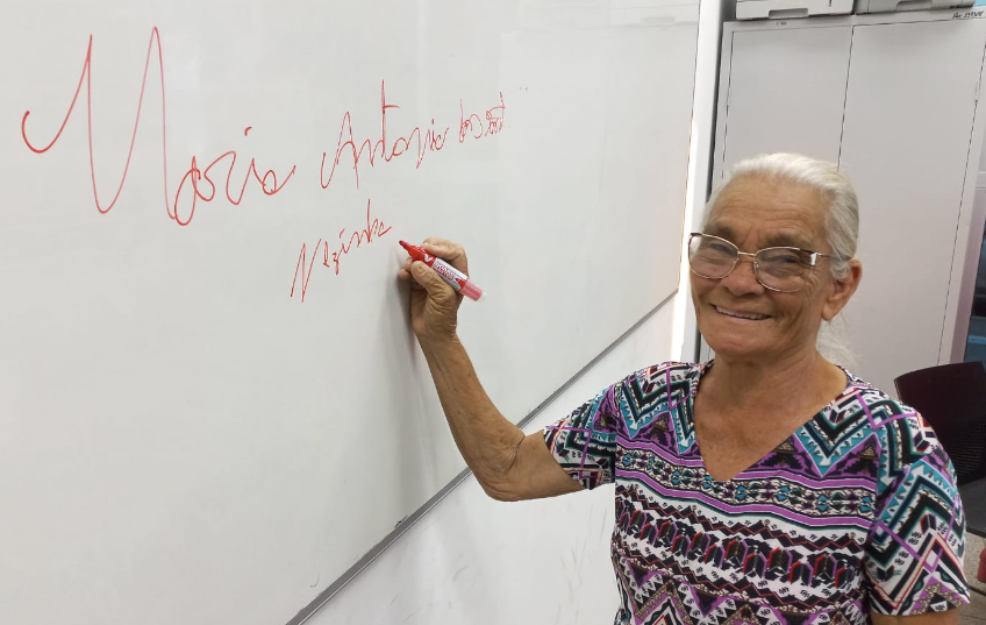 Maria Antonia dos
Nezinha